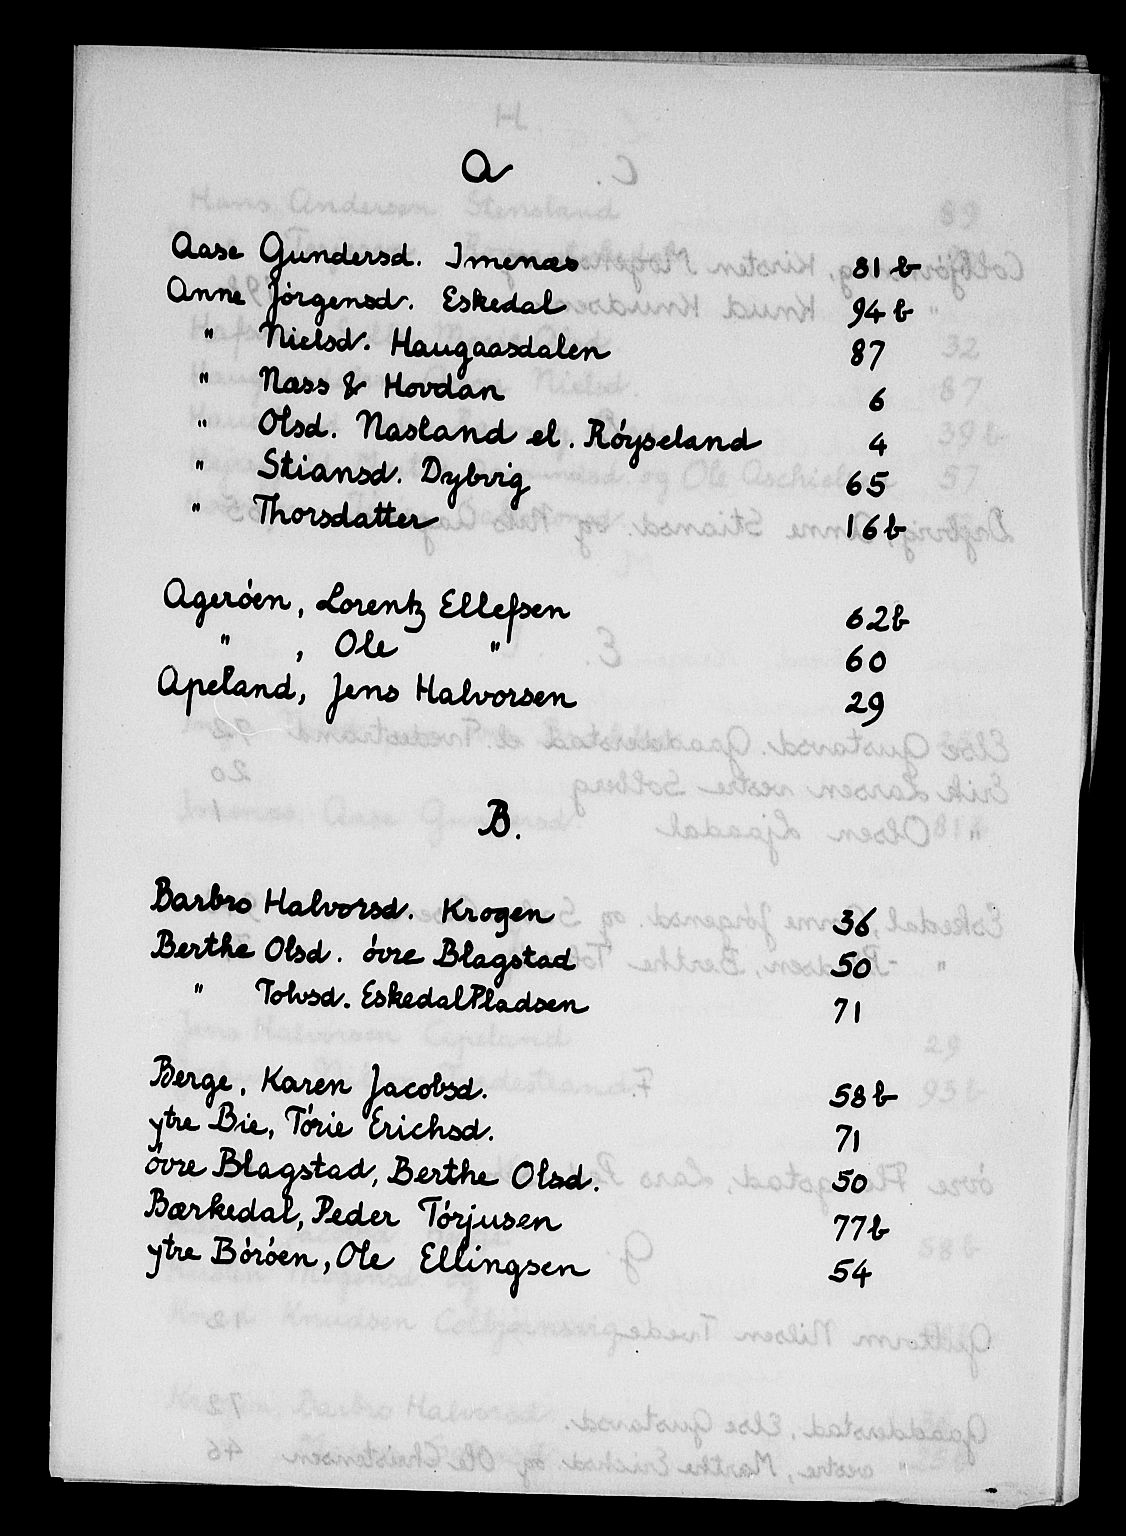 A
Aase Gundersd. Imenæs 81 b
Anne Jórgensd. Eskedal 94 b
" Nielsd. Haugaasdalen 87
" Næss & Hovdan 6
" Olsd. Nasland el. Róyseland 4
" Stiansd. Dybvig 65
" Thorsdatter 16 b
Ageróen, Lorentz Ellefsen 62b
" , Ole " 60
Apeland, Jens Halvorsen 29
B.
Barbro Halvorsd. Krogen 36
Berthe Olsd. óvre Blagstad 50
" Tolvsd. EskedalPladsen 71
Berge, Karen Jacobsd. 58 b
ytre Bie, Tórie Erichsd. 71
óvre Blagstad, Berthe Olsd. 50
Bærkedal, Peder Tórjusen 77b
ytre Bóróen, Ole Ellingsen 54